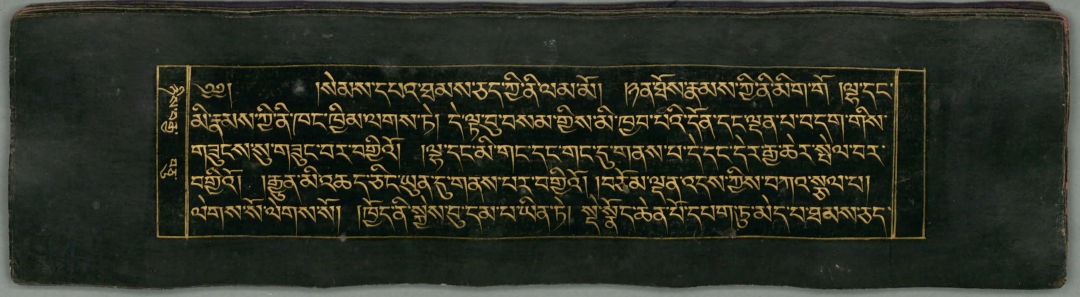 ༄༅། །སེམས་དཔའ་ཐམས་ཅད་ཀྱི་ནི་ལམ་མོ། །ཉན་ཐོས་རྣམས་ཀྱི་ནི་མིག་གོ །ལྷ་དང་
མི་རྣམས་ཀྱི་ནི་ཁང་ཁྱིམ་ལགས་ཏེ། དེ་ལྟ་བུ་བསམ་གྱིས་མི་ཁྱབ་པའི་དོན་དང་ལྡན་པ་བདག་གིས་
གཟུངས་སུ་གཟུང་བར་བགྱིའོ། །ལྷ་དང་མི་གང་དང་གང་དུ་གནས་པ་དེ་དང་དེར་རྒྱ་ཆེར་སྤེལ་བར་
བགྱིའོ། །རྒྱུན་མི་འཆད་ཅིང་ཡུན་དུ་གནས་པར་བགྱིའོ། །བཅོམ་ལྡན་འདས་ཀྱིས་བཀའ་སྩལ་པ།
ལེགས་སོ་ལེགས་སོ། །ཁྱོད་ནི་སྐྱེས་བུ་དམ་པ་ཡིན་ཏེ། སྡེ་སྣོད་ཆེན་པོ་དཔག་ཏུ་མེད་པ་ཐམས་ཅད་